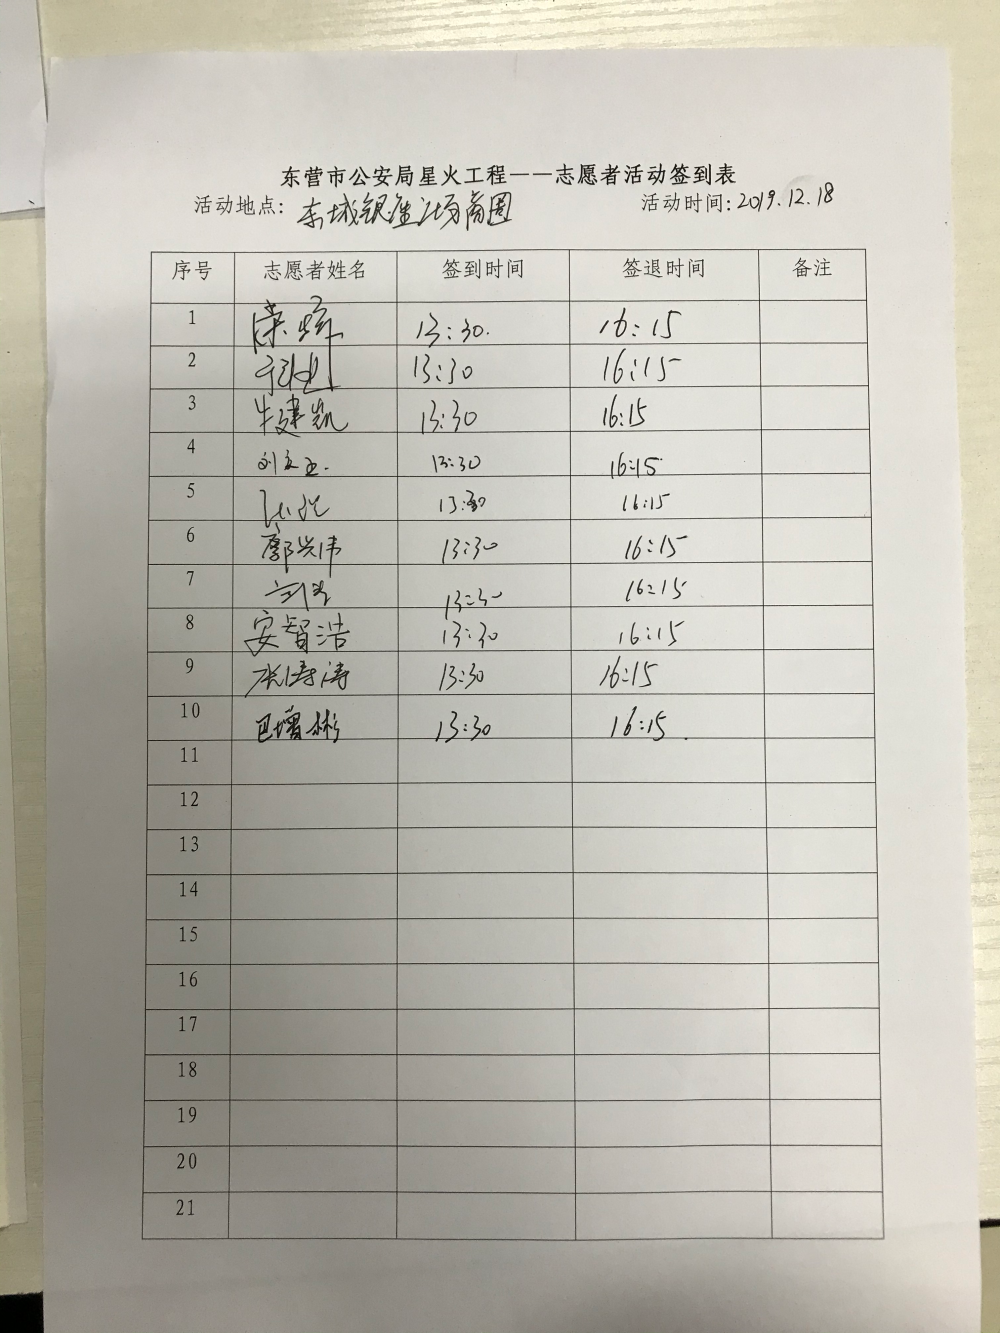 东营市公安局星火工程——志愿者活动签到表
活动地点: 东城银座广场商圈 活动时间: 2019.12.18
序号 志愿者姓名 签到时间 签退时间 备注
1 13:30. 16:15
2 13:30 16:15
3 牛建凯 13:30 16:15
4 13:30 16:15
5 13:30 16:15
6 郭兴伟 13:30 16:15
7 13:30 16:15
8 安智浩 13:30 16:15
9 张涛涛 13:30 16:15
10 巴增彬 13:30 16:15
11
12
13
14
15
16
17
18
19
20
21